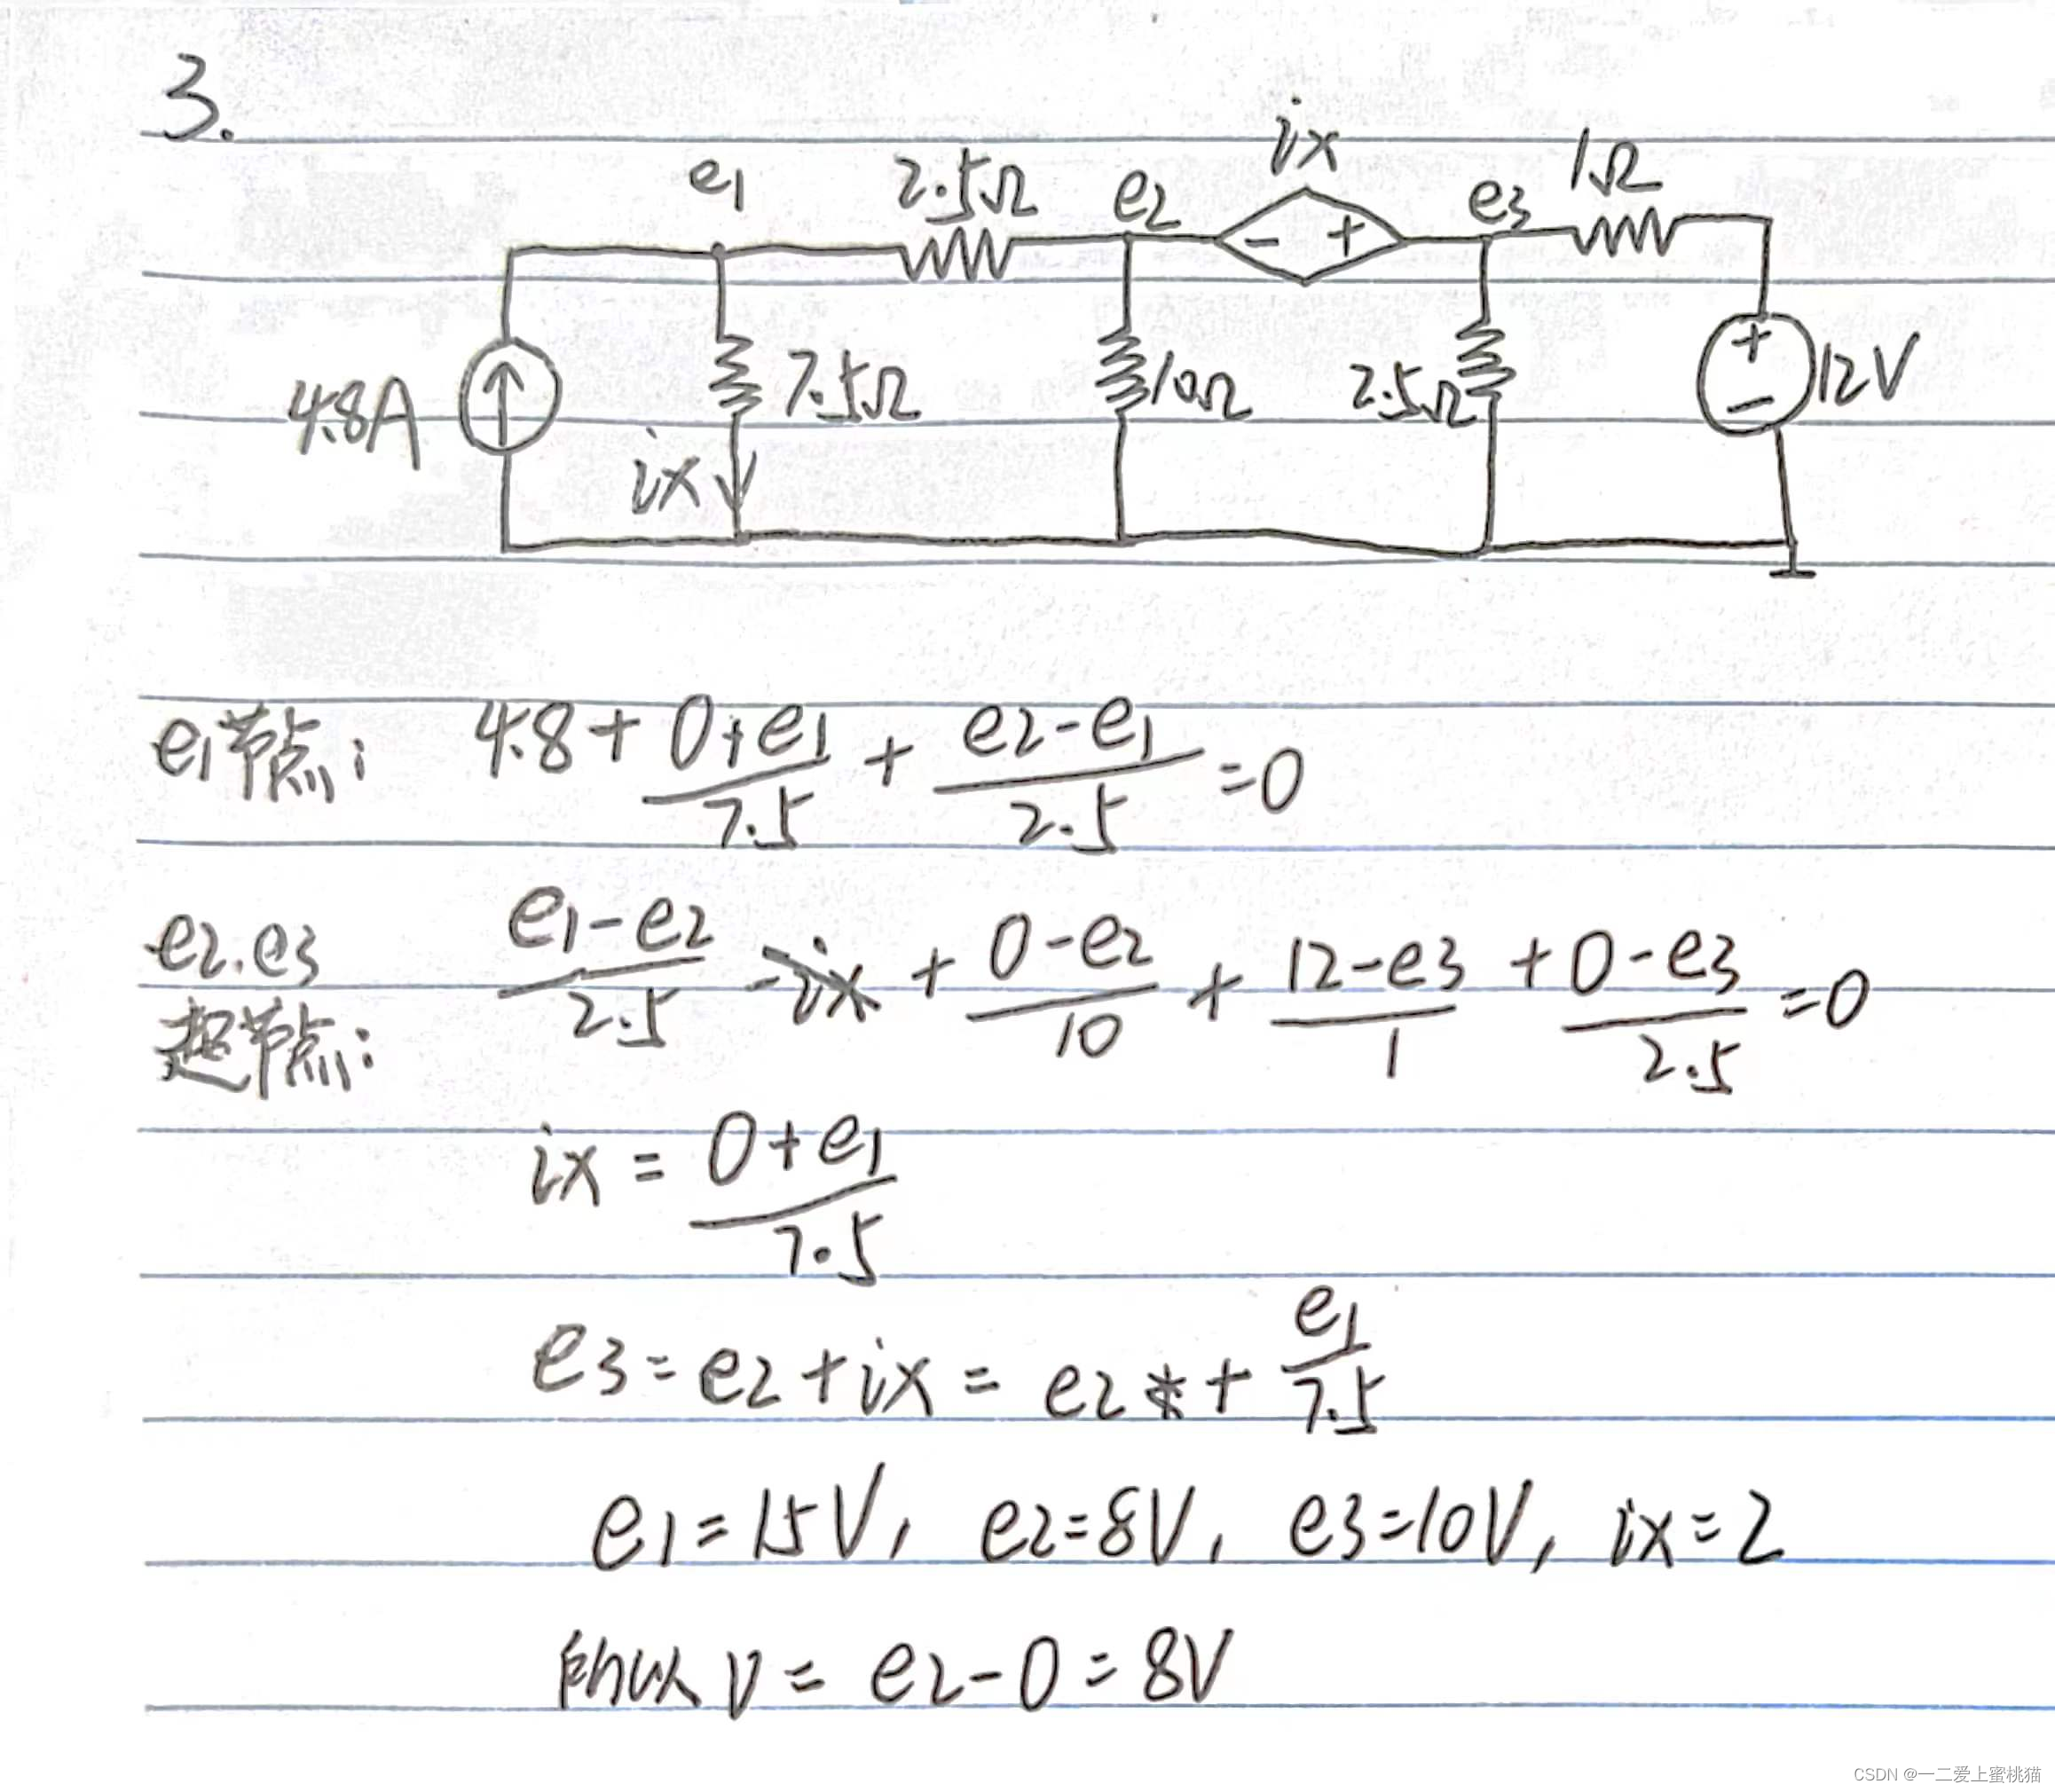 3.
ix
e1 2.5Ω e2 - + e3 1Ω
4.8A 7.5Ω 10Ω 2.5Ω + - 12V
ix
e1节点: 4.8 + (0+e1)/7.5 + (e2-e1)/2.5 = 0
e2.e3 (e1-e2)/2.5 -ix + (0-e2)/10 + (12-e3)/1 + (0-e3)/2.5 = 0
超节点:
ix = (0+e1)/7.5
e3 = e2 + ix = e2 + e1/7.5
e1=15V, e2=8V, e3=10V, ix=2
所以 V = e2-0 = 8V
CSDN @一二爱上蜜桃猫